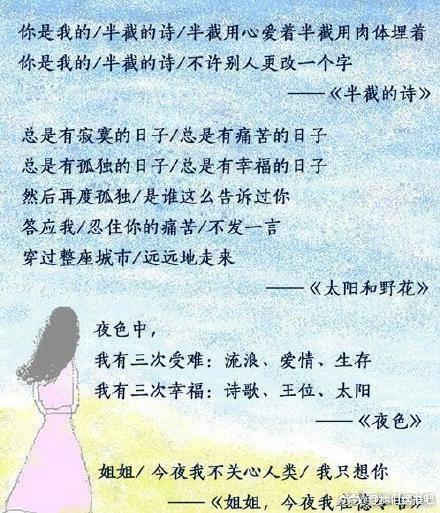 你是我的/半截的诗/半截用心爱着半截用肉体埋着
你是我的/半截的诗/不许别人更改一个字
——《半截的诗》
总是有寂寞的日子/总是有痛苦的日子
总是有孤独的日子/总是有幸福的日子
然后再度孤独/是谁这么告诉过你
答应我/忍住你的痛苦/不发一言
穿过整座城市/远远地走来
——《太阳和野花》
夜色中，
我有三次受难：流浪、爱情、生存
我有三次幸福：诗歌、王位、太阳
——《夜色》
姐姐/ 今夜我不关心人类/ 我只想你
——《姐姐，今夜我在德令哈》